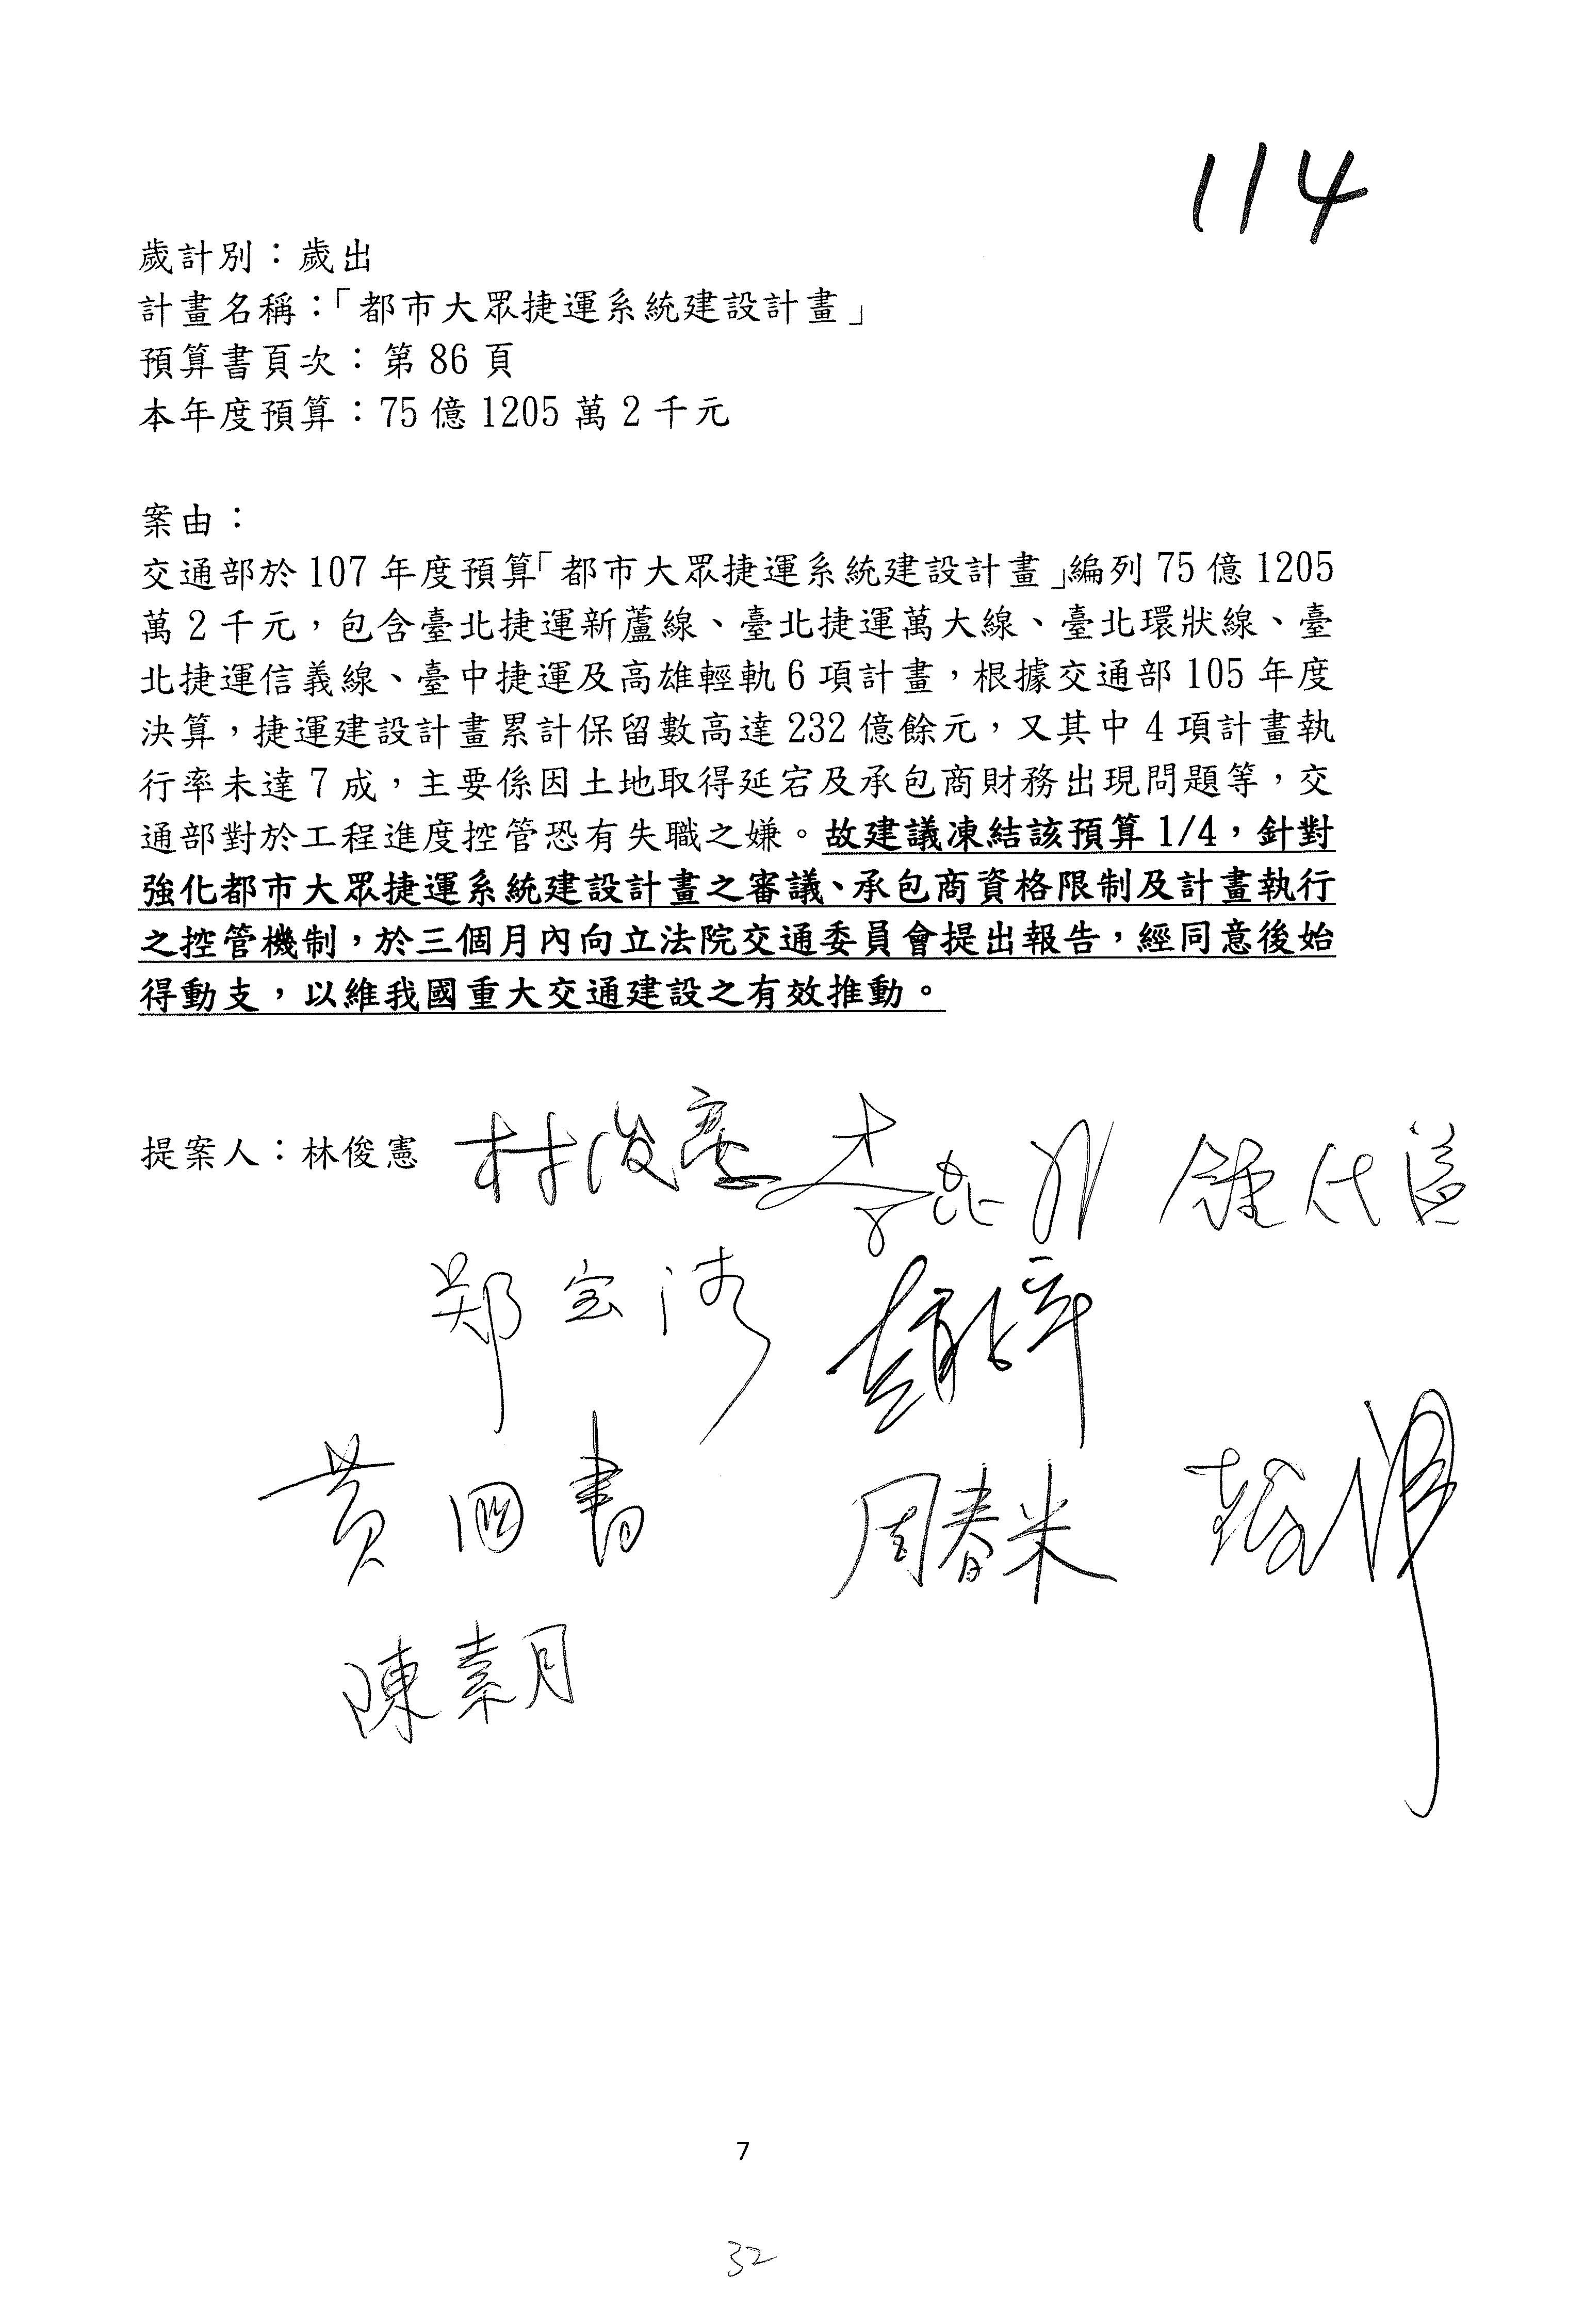 114
歲計別：歲出
計畫名稱：「都市大眾捷運系統建設計畫」
預算書頁次：第 86 頁
本年度預算：75 億 1205 萬 2 千元
案由：
交通部於 107 年度預算「都市大眾捷運系統建設計畫」編列 75 億 1205
萬 2 千元，包含臺北捷運新蘆線、臺北捷運萬大線、臺北環狀線、臺
北捷運信義線、臺中捷運及高雄輕軌 6 項計畫，根據交通部 105 年度
決算，捷運建設計畫累計保留數高達 232 億餘元，又其中 4 項計畫執
行率未達 7 成，主要係因土地取得延宕及承包商財務出現問題等，交
通部對於工程進度控管恐有失職之嫌。故建議凍結該預算 1/4，針對
強化都市大眾捷運系統建設計畫之審議、承包商資格限制及計畫執行
之控管機制，於三個月內向立法院交通委員會提出報告，經同意後始
得動支，以維我國重大交通建設之有效推動。
提案人：林俊憲 林俊憲 李昆澤 鍾佳濱
郑宝清 趙天麟
黃國書 周春米
陳素月
7
32